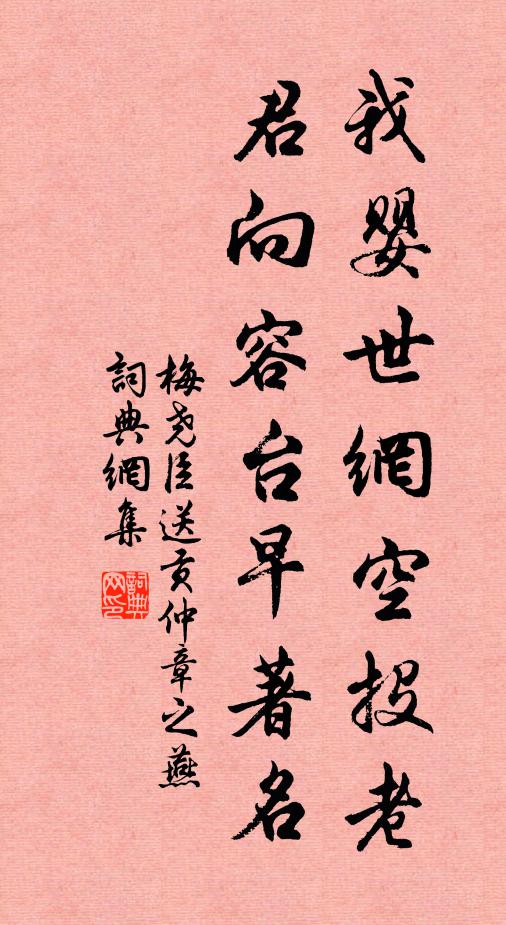 我婴世網空投老
君向容台早著名
梅尧臣送贡仲章之燕
詞典網集
詞典网印